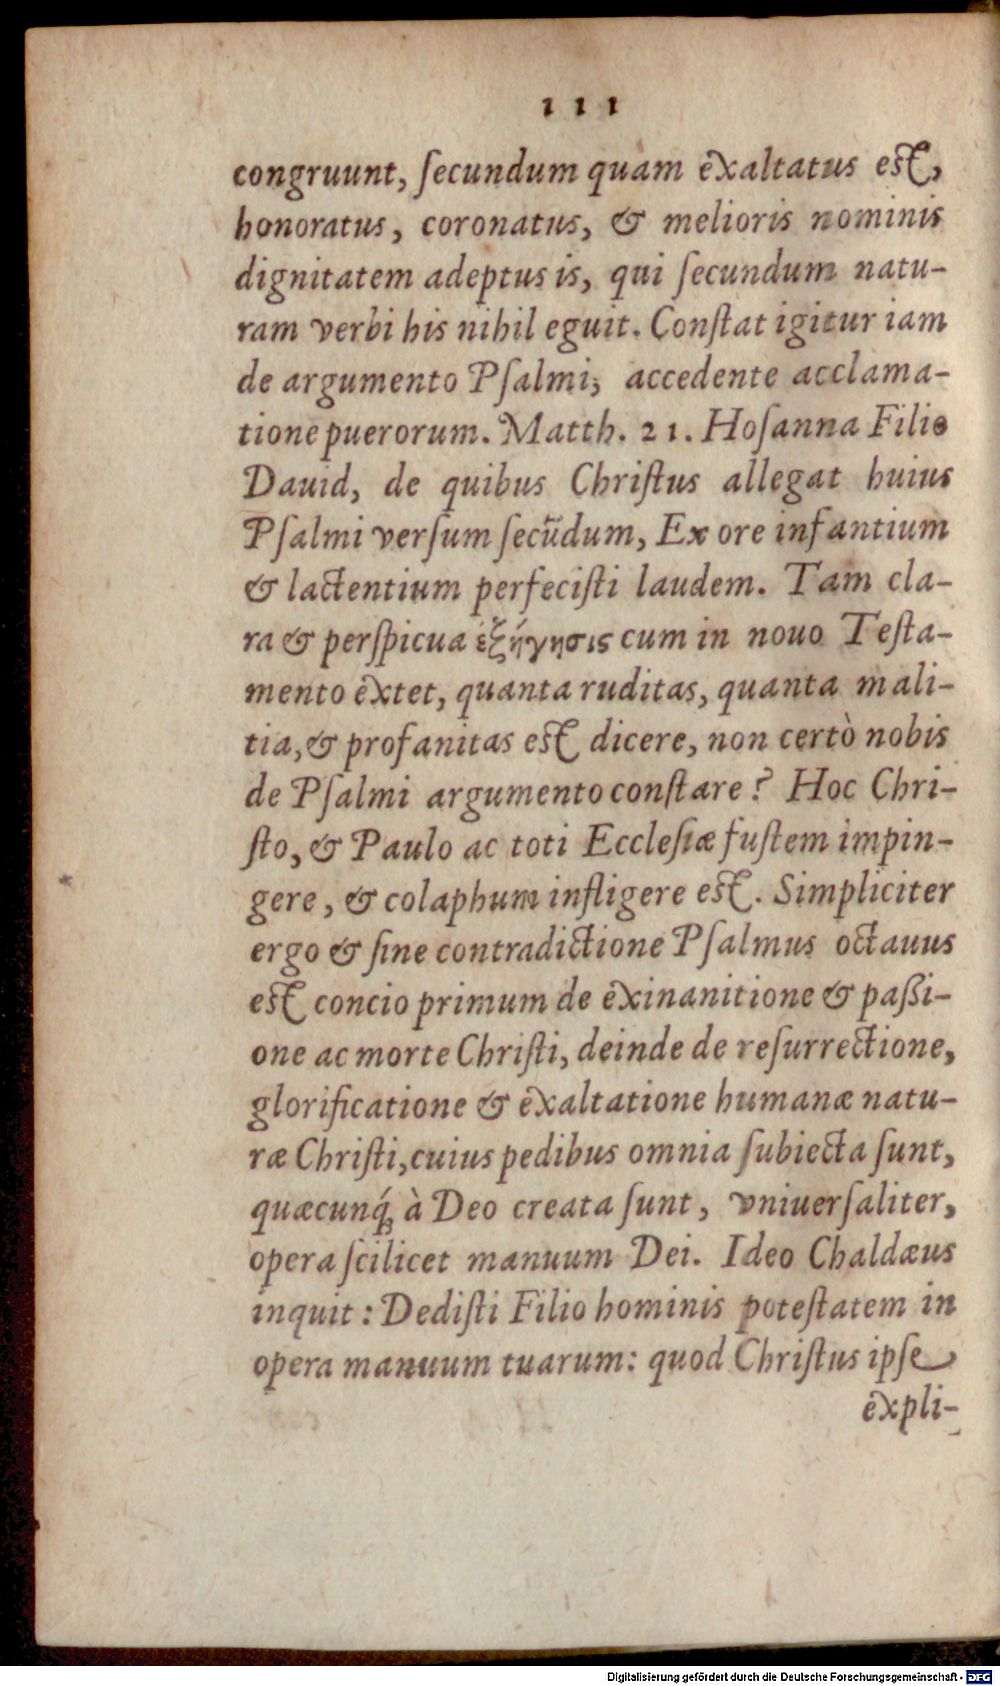 111
congruunt, ſecundum quam exaltatus eſt,
honoratus, coronatus, & melioris nominis
dignitatem adeptus is, qui ſecundum natu-
ram verbi his nihil eguit. Conſtat igitur iam
de argumento Pſalmi; accedente acclama-
tione puerorum. Matth. 21. Hoſanna Filio
Dauid, de quibus Chriſtus allegat huius
Pſalmi verſum ſecũdum, Ex ore infantium
& lactentium perfeciſti laudem. Tam cla-
ra & perſpicua ἐξήγησις cum in nouo Teſta-
mento extet, quanta ruditas, quanta mali-
tia, & profanitas eſt dicere, non certò nobis
de Pſalmi argumento conſtare? Hoc Chri-
ſto, & Paulo ac toti Eccleſiæ fuſtem impin-
gere, & colaphum infligere eſt. Simpliciter
ergo & ſine contradictione Pſalmus octauus
eſt concio primum de exinanitione & paßi-
one ac morte Chriſti, deinde de reſurrectione,
glorificatione & exaltatione humanæ natu-
ræ Chriſti, cuius pedibus omnia ſubiecta ſunt,
quæcunq́; à Deo creata ſunt, vniuerſaliter,
opera ſcilicet manuum Dei. Ideo Chaldæus
inquit: Dediſti Filio hominis poteſtatem in
opera manuum tuarum: quod Chriſtus ipſe
expli-
Digitalisierung gefördert durch die Deutsche Forschungsgemeinschaft - DFG